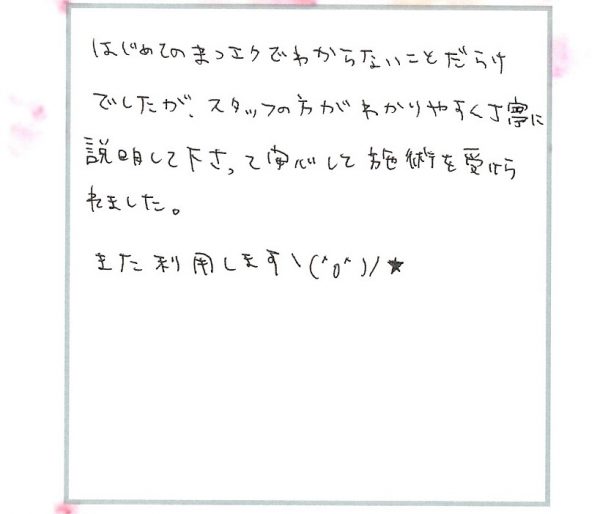 はじめてのまつエクでわからないことだらけ
でしたが、スタッフの方がわかりやすく丁寧に
説明して下さって安心して施術を受けら
れました。
また利用します\(^o^)/★